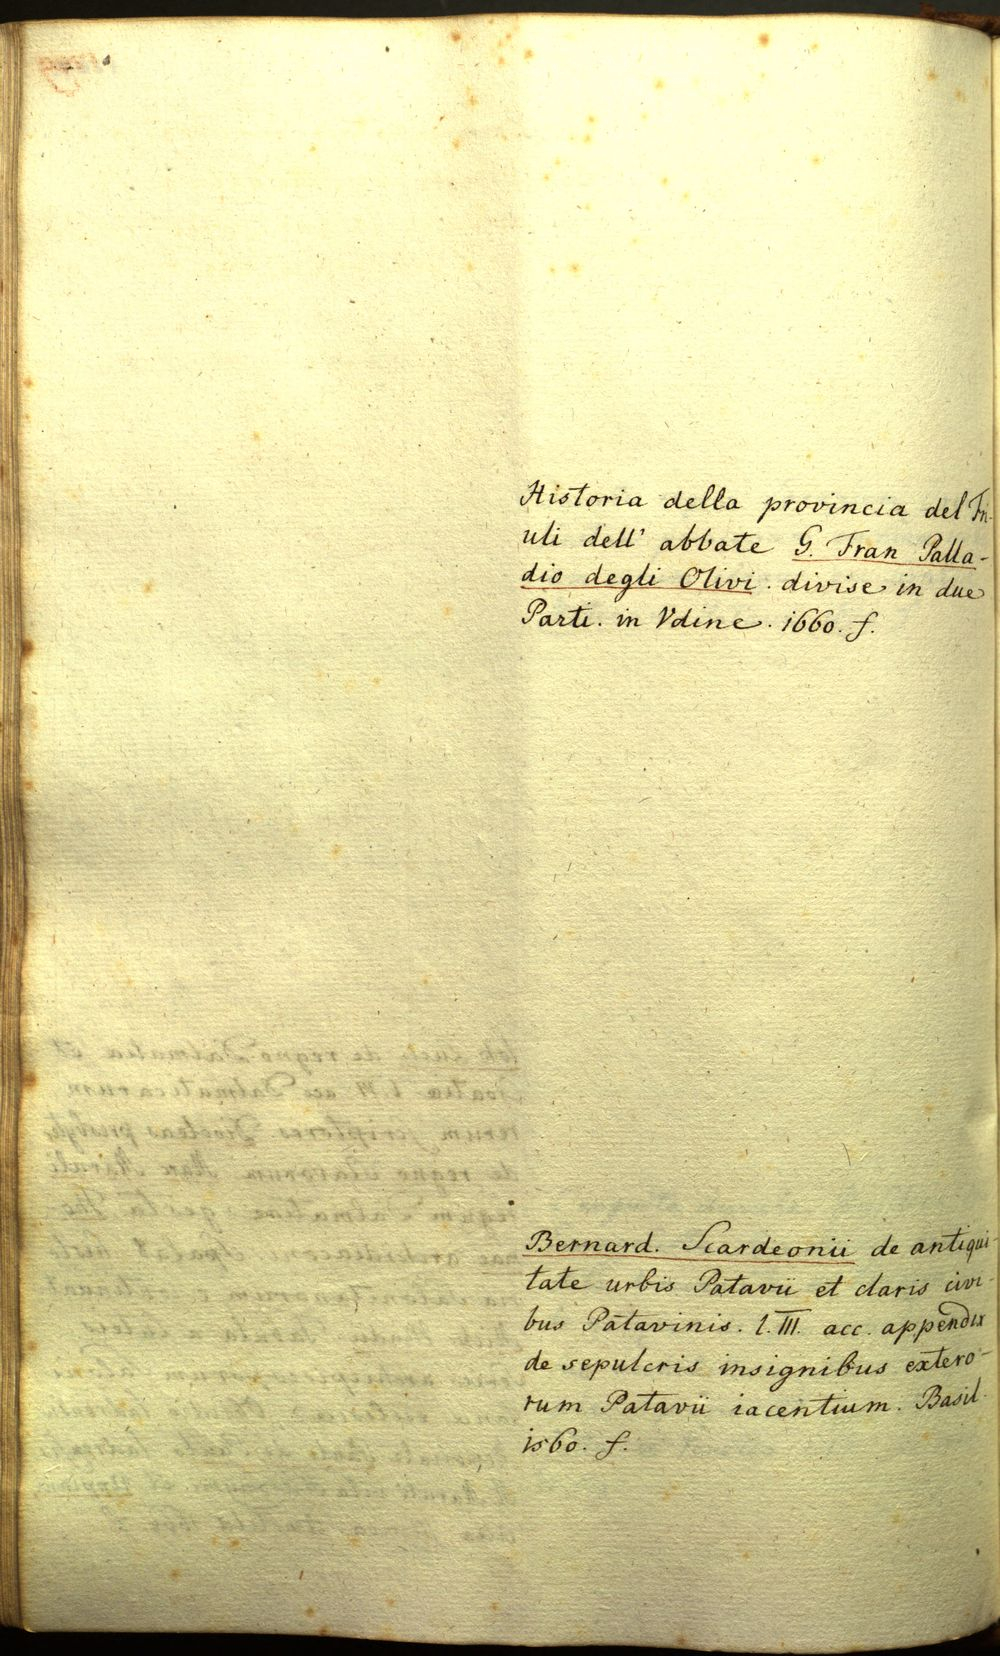 Historia della provincia del Fri-
uli dell' abbate G. Fran Palla-
dio degli Olivi. divise in due
Parti. in Vdine. 1660. f.
Bernard. Scardeonii de antiqui-
tate urbis Patavii et claris civi-
bus Patavinis. l. III. acc. appendix
de sepulcris insignibus extero-
rum Patavii iacentium. Basil.
1560. f.